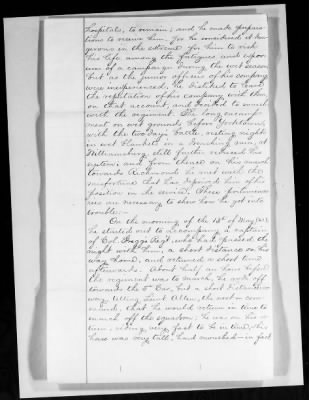 hospitals, to remain; and he made prepara-
tions to receive him. For he considered it dan-
gerous in the extreme for him to risk
his life among the fatigues and expos-
ures of a campaign during the wet season
but as the junior officers of his company
were inexperienced, he disliked to leave
the reputation of his company with them
on that account, and decided to march
with the regiment. The long encamp-
ment on wet grounds before Yorktown,
with the two days battle, resting night
in wet blankets in a drenching rain, at
Williamsburg still further reduced his
system; and from thence on this march
towards Richmond he met with the
misfortune that has deprived him of his
position in the service. These preliminar-
ies are necessary to show how he got into
trouble:
On the morning of the 13th of May (62),
he started out to accompany a captain
of Col. Biggs Regt, who had passed the
night with him a short distance on his
way home, and returned a short time
afterwards. About half an hour before
the regiment was to march he rode off
towards the 6" Cav, but a short distance
away, telling Lieut Allen, the next in com-
mand, that he would return in time to
march off the squadron; he was on his re-
turn, riding very fast to be in time, (his
horse was very tall, hard mouthed - in fact